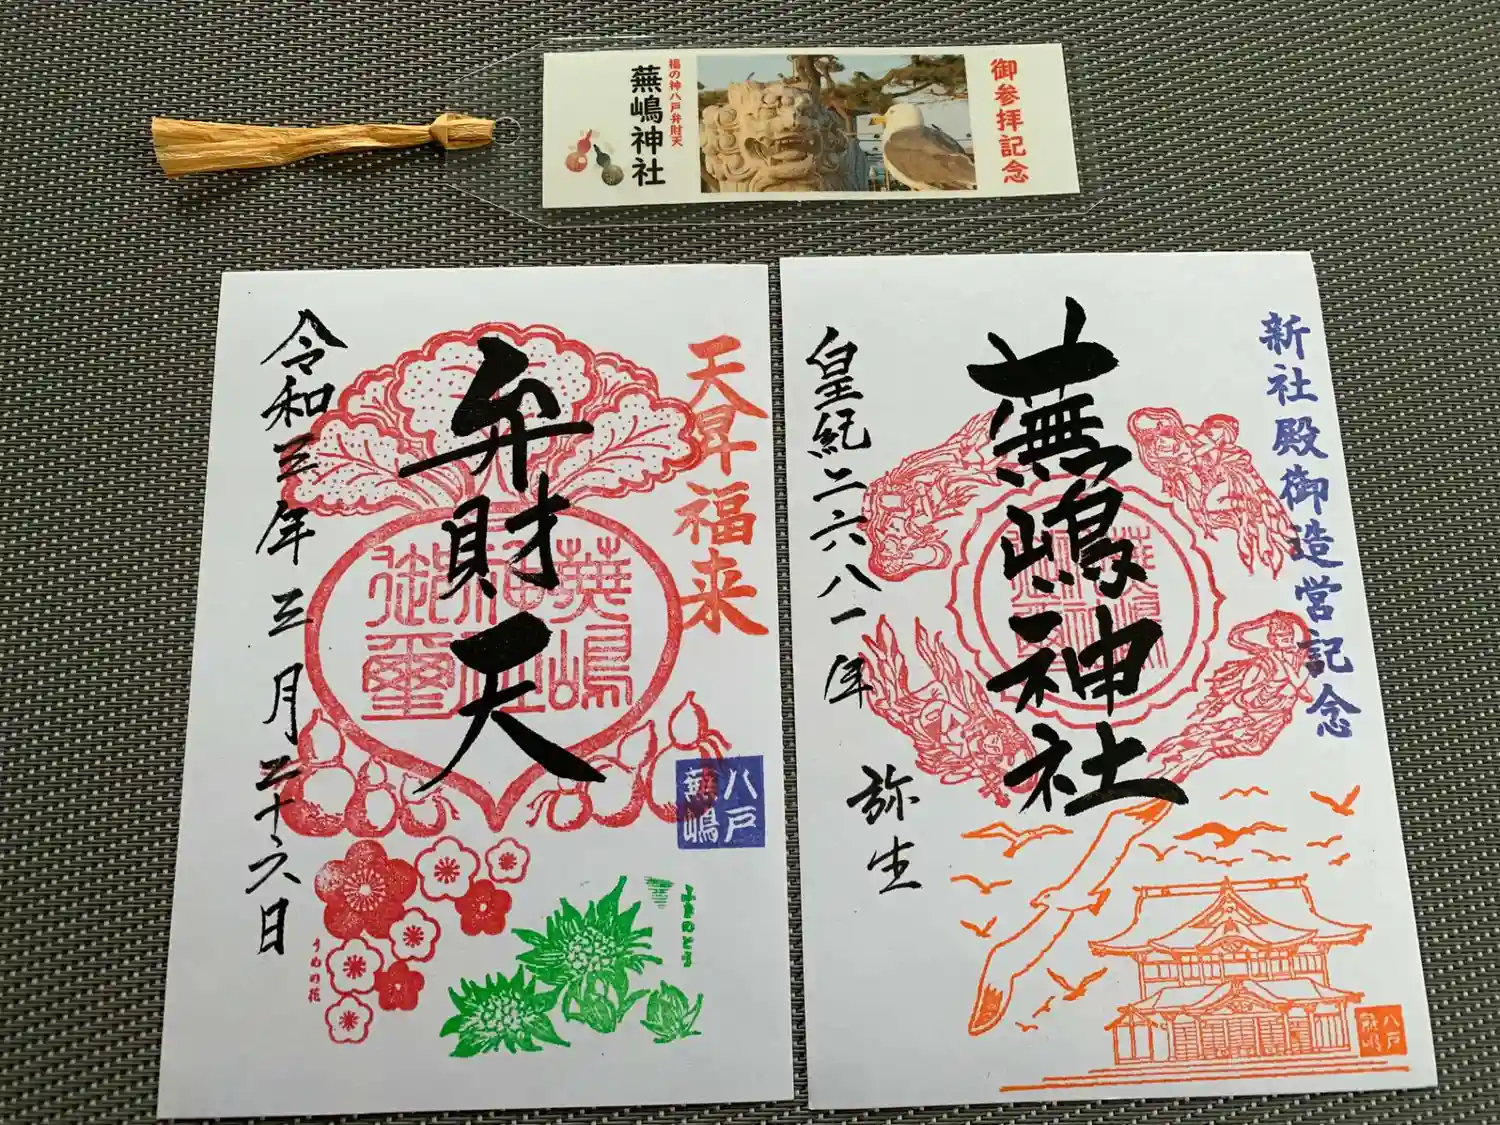 御参拝記念
福の神八戸弁財天
蕪嶋神社
天昇福来
弁財天
蕪嶋
神社
御璽
令和三年三月二十六日
八戸
蕪嶋
うめの花
ふきのとう
新社殿御造営記念
蕪嶋神社
皇紀二六八一年
弥生
八戸
蕪嶋